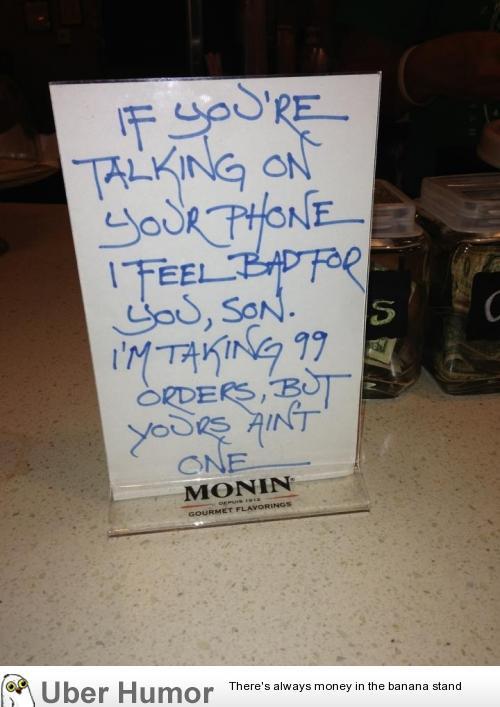 IF YOU'RE
TALKING ON
YOUR PHONE
I FEEL BAD FOR
YOU, SON.
I'M TAKING 99
ORDERS, BUT
YOURS AINT
ONE
MONIN
DEPUIS 1912
GOURMET FLAVORINGS
S
Uber Humor
There's always money in the banana stand